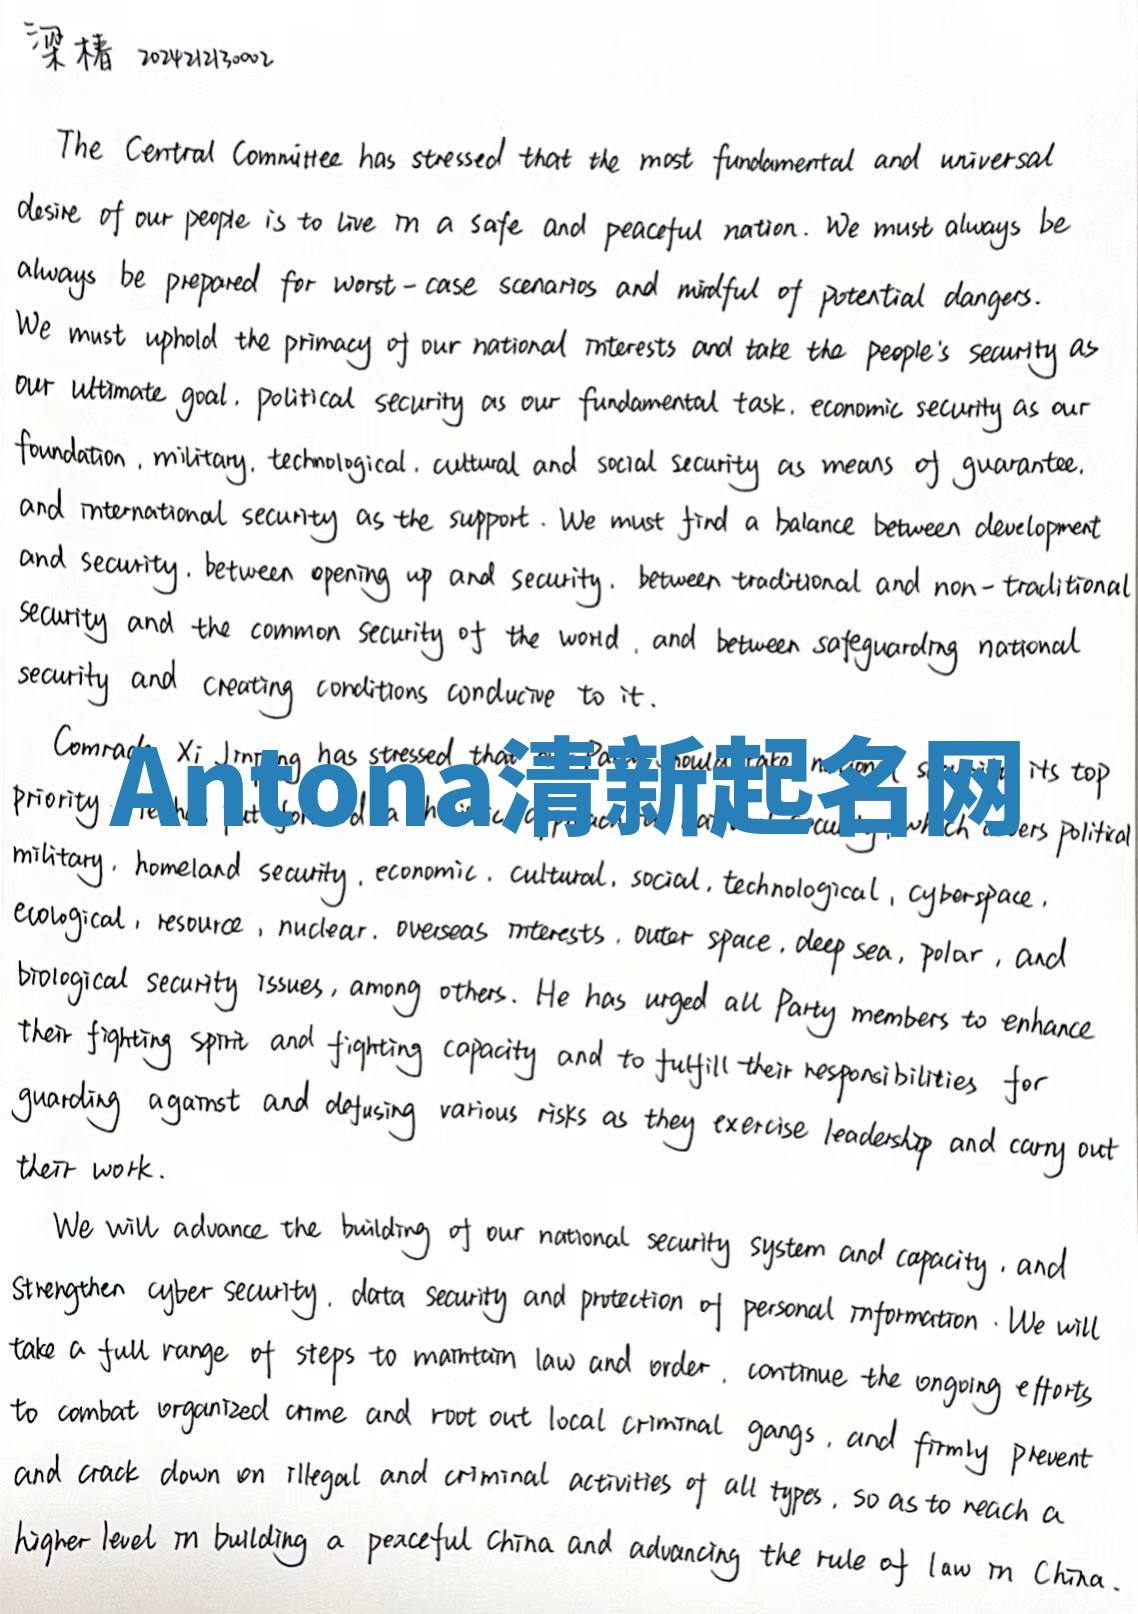 梁椿 2024212130002
The Central Committee has stressed that the most fundamental and universal
desire of our people is to live in a safe and peaceful nation. We must always be
always be prepared for worst-case scenarios and mindful of potential dangers.
We must uphold the primacy of our national interests and take the people's security as
our ultimate goal, political security as our fundamental task, economic security as our
foundation, military, technological, cultural and social security as means of guarantee,
and international security as the support. We must find a balance between development
and security, between opening up and security, between traditional and non-traditional
security and the common security of the world, and between safeguarding national
security and creating conditions conducive to it.
Comrade Xi Jinping has stressed that Party should take national its top
priority put forward a which covers political
Antona清新起名网
military, homeland security, economic, cultural, social, technological, cyberspace,
ecological, resource, nuclear, overseas interests, outer space, deep sea, polar, and
biological security issues, among others. He has urged all Party members to enhance
their fighting spirit and fighting capacity and to fulfill their responsibilities for
guarding against and defusing various risks as they exercise leadership and carry out
their work.
We will advance the building of our national security system and capacity, and
strengthen cyber security, data security and protection of personal information. We will
take a full range of steps to maintain law and order, continue the ongoing efforts
to combat organized crime and root out local criminal gangs, and firmly prevent
and crack down on illegal and criminal activities of all types, so as to reach a
higher level in building a peaceful China and advancing the rule of law in China.